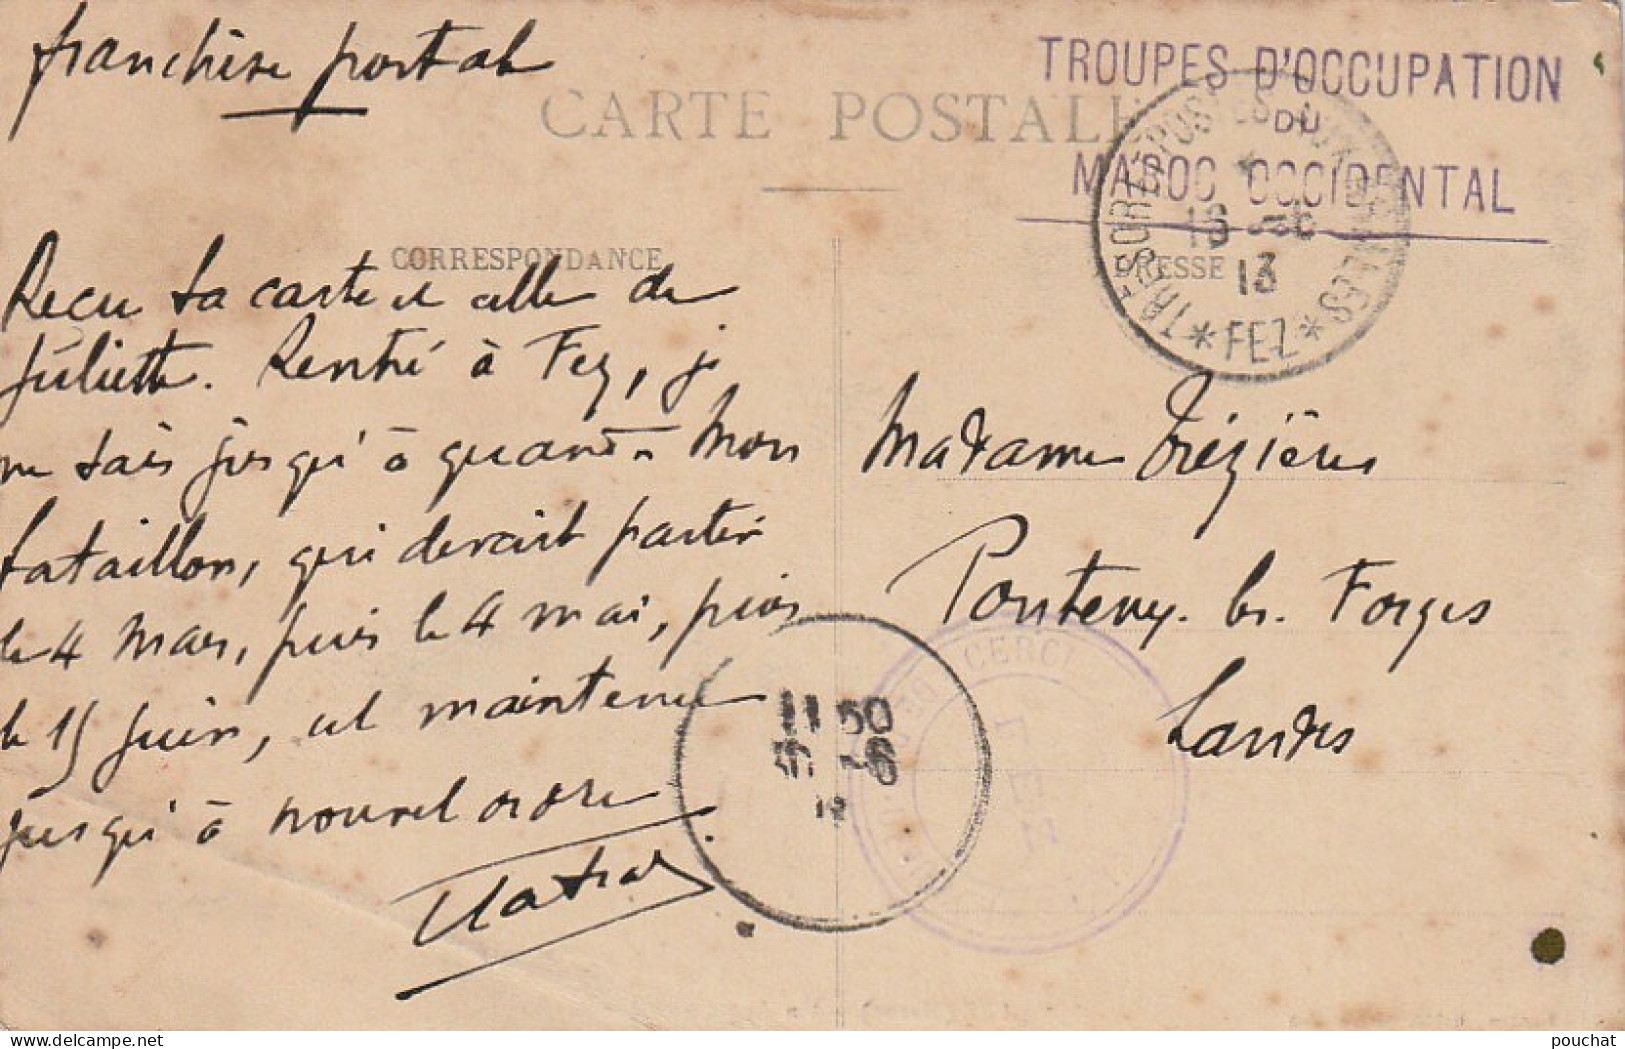 franchise postale
CARTE POSTALE
TROUPES D'OCCUPATION
DU
MAROC OCCIDENTAL
TRESOR ET POSTES AUX ARMEES
13
* FEZ *
CORRESPONDANCE
ADRESSE
Reçu ta carte et celle de
Juliette. Rentré à Fez, je
ne sais jusqu'à quand. Mon
bataillon, qui devait partir
le 4 mars, puis le 4 mai, puis
le 15 juin, est maintenu
jusqu'à nouvel ordre
Madame Trézières
Pontenx-les-Forges
Landes
11 50
CERCLE
FEZ
pouchat